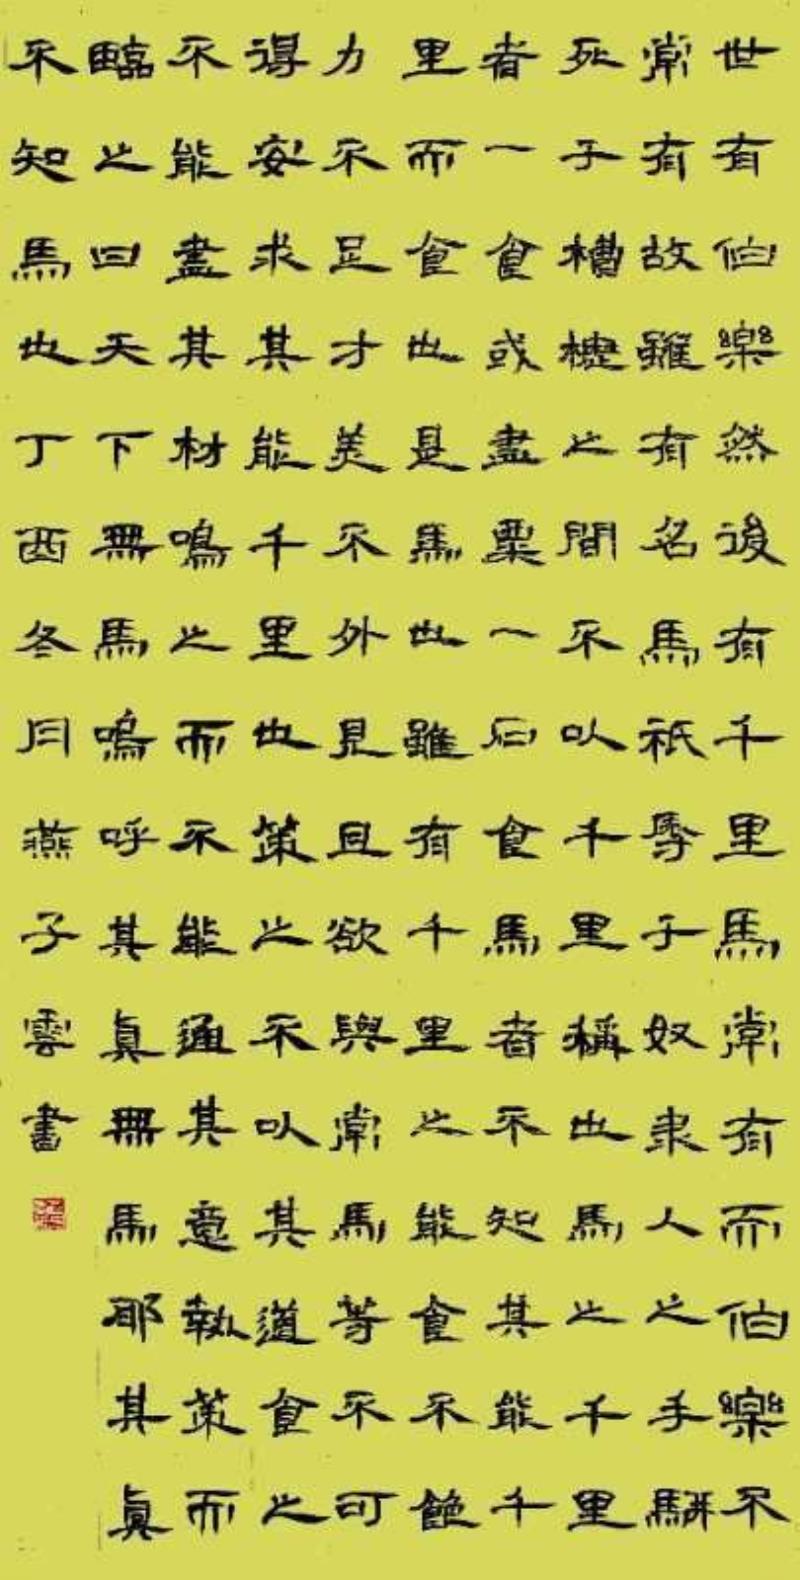 世有伯樂然後有千里馬常有而伯樂不
常有故雖有名馬祇辱于奴隶人之手駢
死于槽櫪之間不以千里稱也馬之千里
者一食或盡粟一石食馬者不知其能千
里而食也是馬也雖有千里之能食不飽
力不足才美不外見且欲與常馬等不可
得安求其能千里也策之不以其道食之
不能盡其材鳴之而不能通其意執策而
臨之曰天下無馬嗚呼其真無馬耶其真
不知馬也丁酉冬月燕子雲書